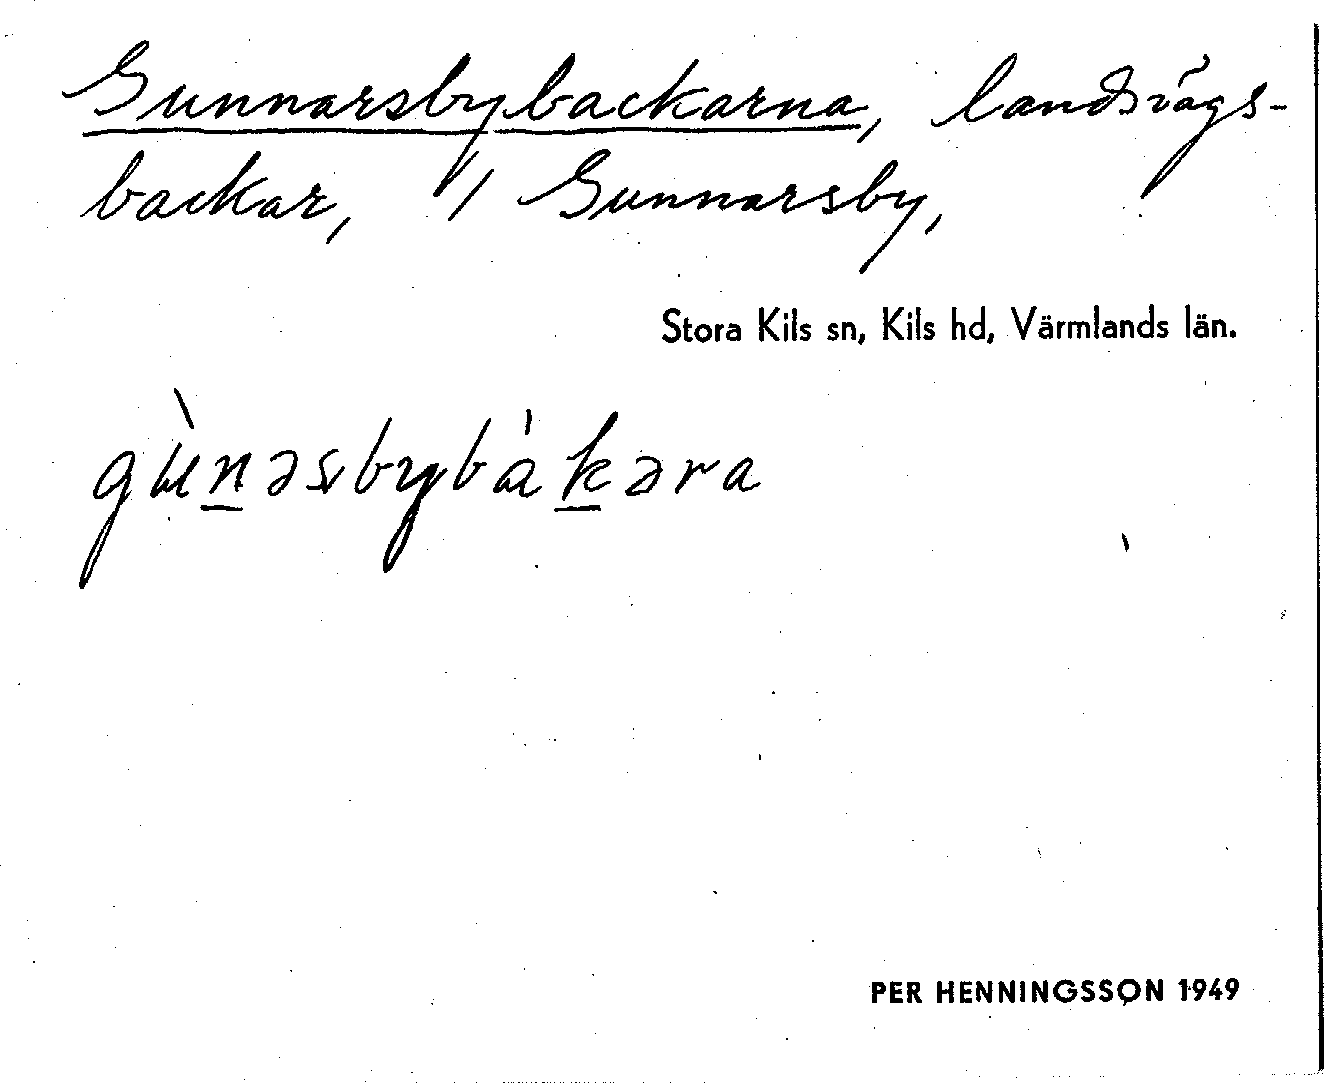 Gunnarsbybackarna, landsvägs-
backar, i Gunnarsby,
Stora Kils sn, Kils hd, Värmlands län.
gùnəsbybàkəra
PER HENNINGSSON 1949